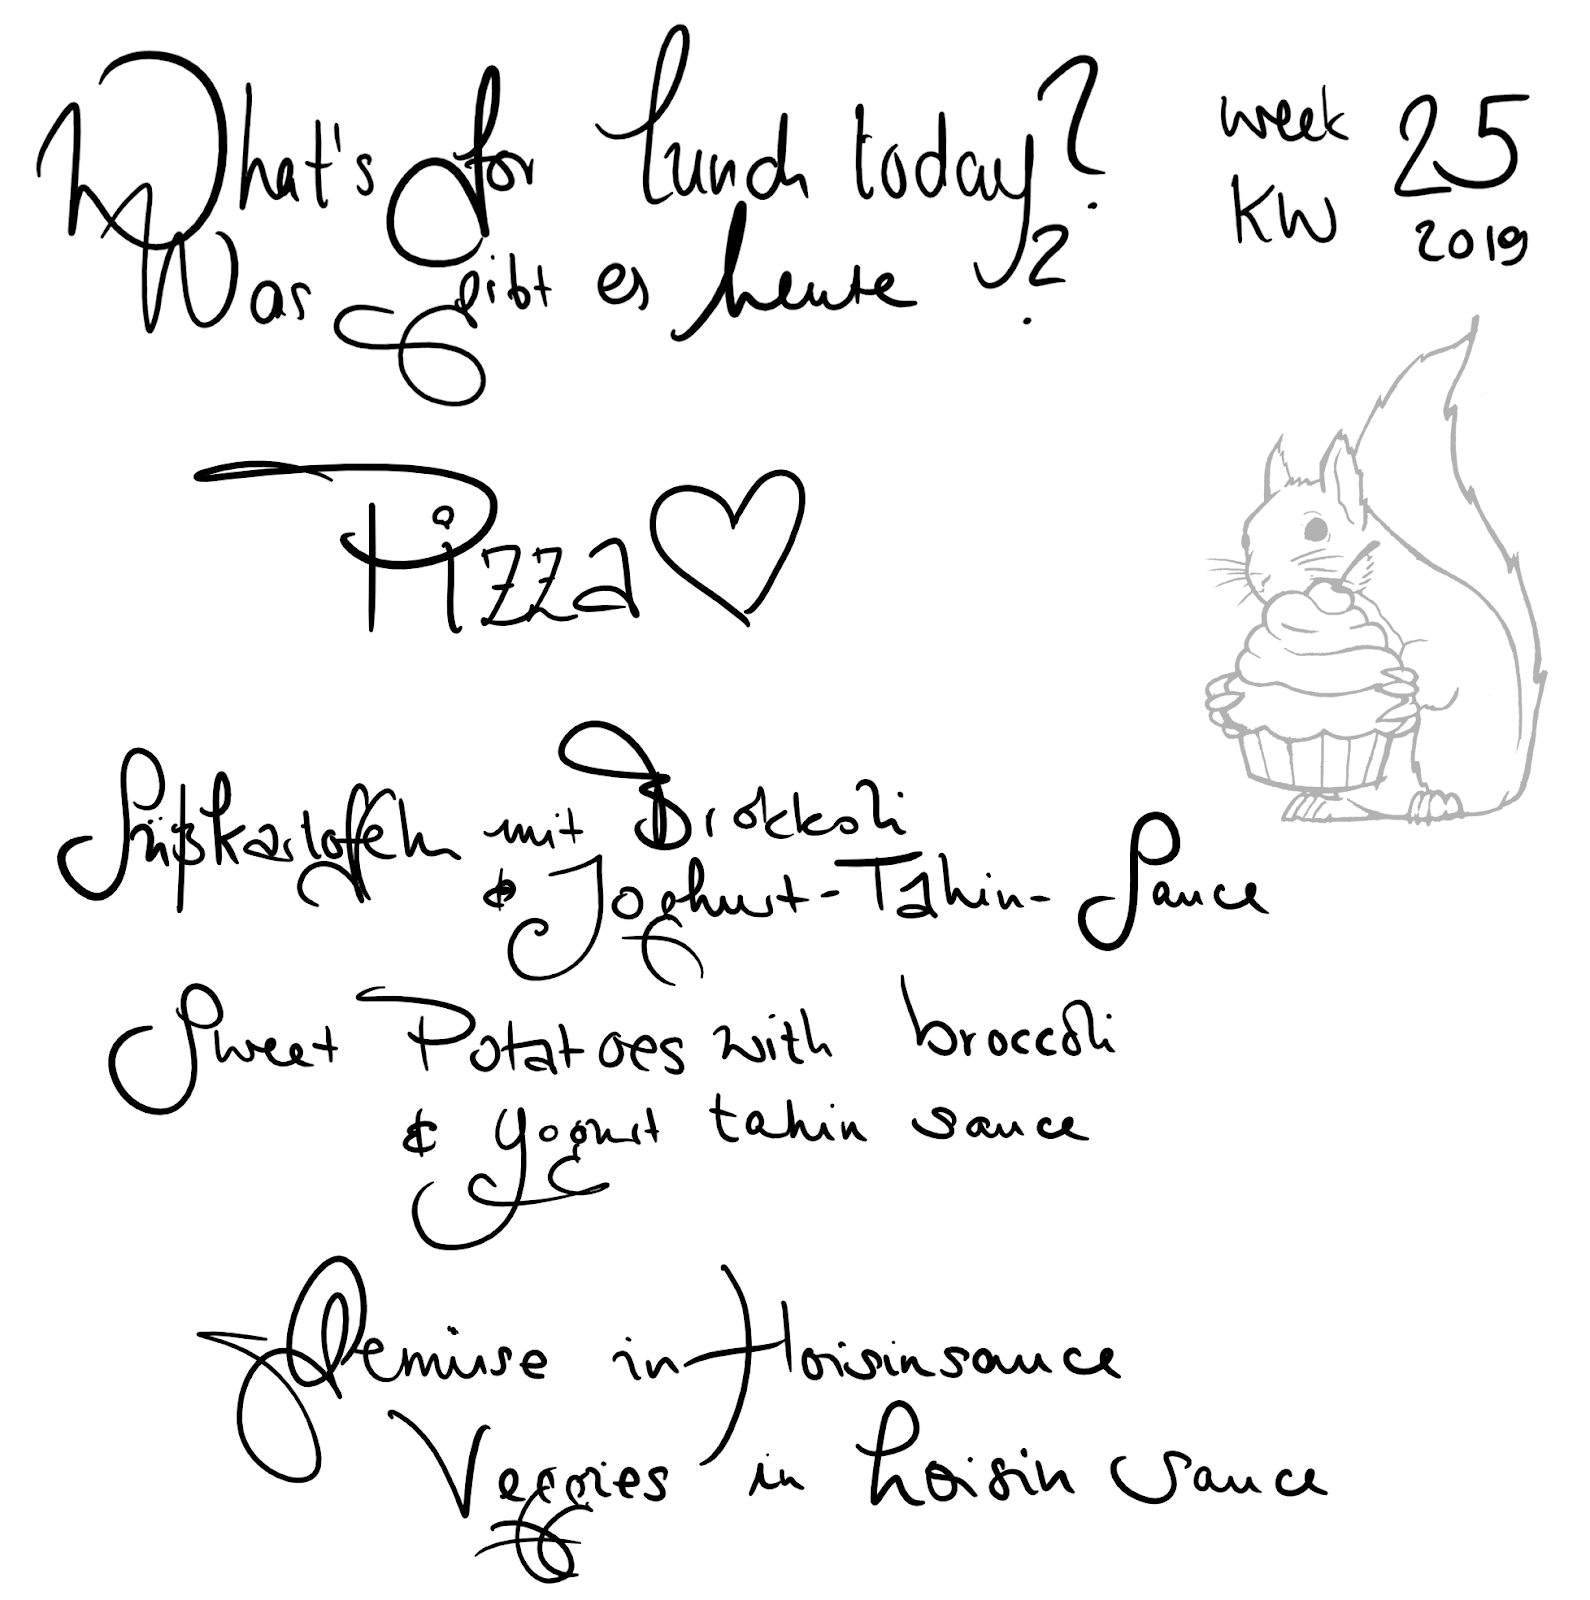 What's for lunch today?
week 25
KW 2019
Was gibt es heute?
Pizza
Süßkartoffeln mit Brokkoli
& Joghurt-Tahin-Sauce
Sweet Potatoes with broccoli
& yogurt tahin sauce
Gemüse in Hoisinsauce
Veggies in hoisin sauce